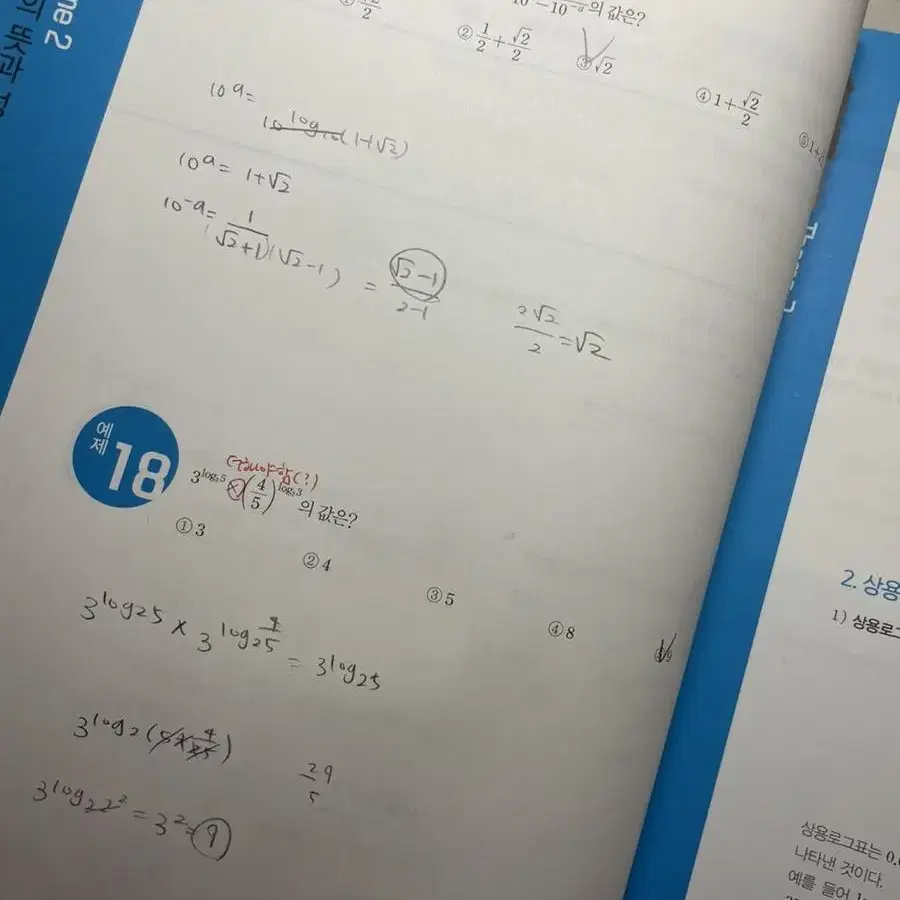 me 2
의 뜻과 성
10 - 10⁻ᵃ의 값은?
② 1/2 + √2/2
③ √2
④ 1 + √2/2
⑤ 1+
10ᵃ =
10^log₁₀(1+√2)
10ᵃ = 1+√2
10⁻ᵃ = 1/(√2+1)(√2-1) = √2-1/2-1
2√2/2 = √2
예제 18
더해야함(?)
3^log₂5 × (4/5)^log₂3 의 값은?
① 3
② 4
③ 5
④ 8
⑤ 9
3^log₂5 × 3^log₂4/5 = 3^log₂5
3^log₂(5×4/5)
29/5
3^log₂2² = 3² = 9
2. 상용
1) 상용로그
상용로그표는 0.
나타낸 것이다.
예를 들어